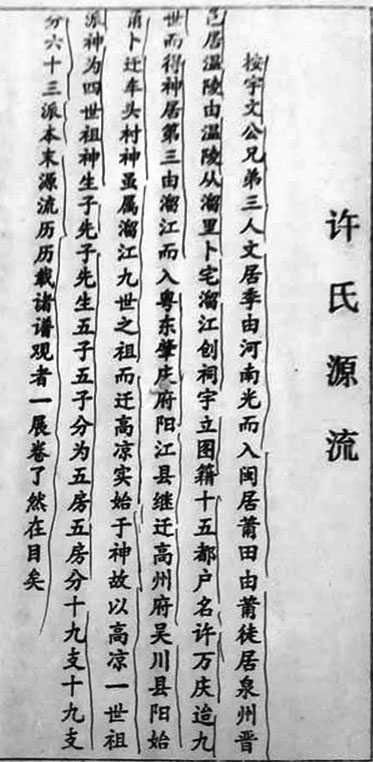 许氏源流
按宇文公兄弟三人文居季由河南光而入闽居莆田由莆徒居泉州晋
邑居温陵由温陵从溜里卜宅溜江创祠宇立图籍十五都户名许万庆迨九
世而得神居第三由溜江而入粤东肇庆府阳江县继迁高州府吴川县阳始
甫卜迁车头村神虽属溜江九世之祖而迁高凉实始于神故以高凉一世祖
派神为四世祖神生子先子先生五子五子分为五房五房分十九支十九支
分六十三派本末源流历历载诸谱观者一展卷了然在目矣